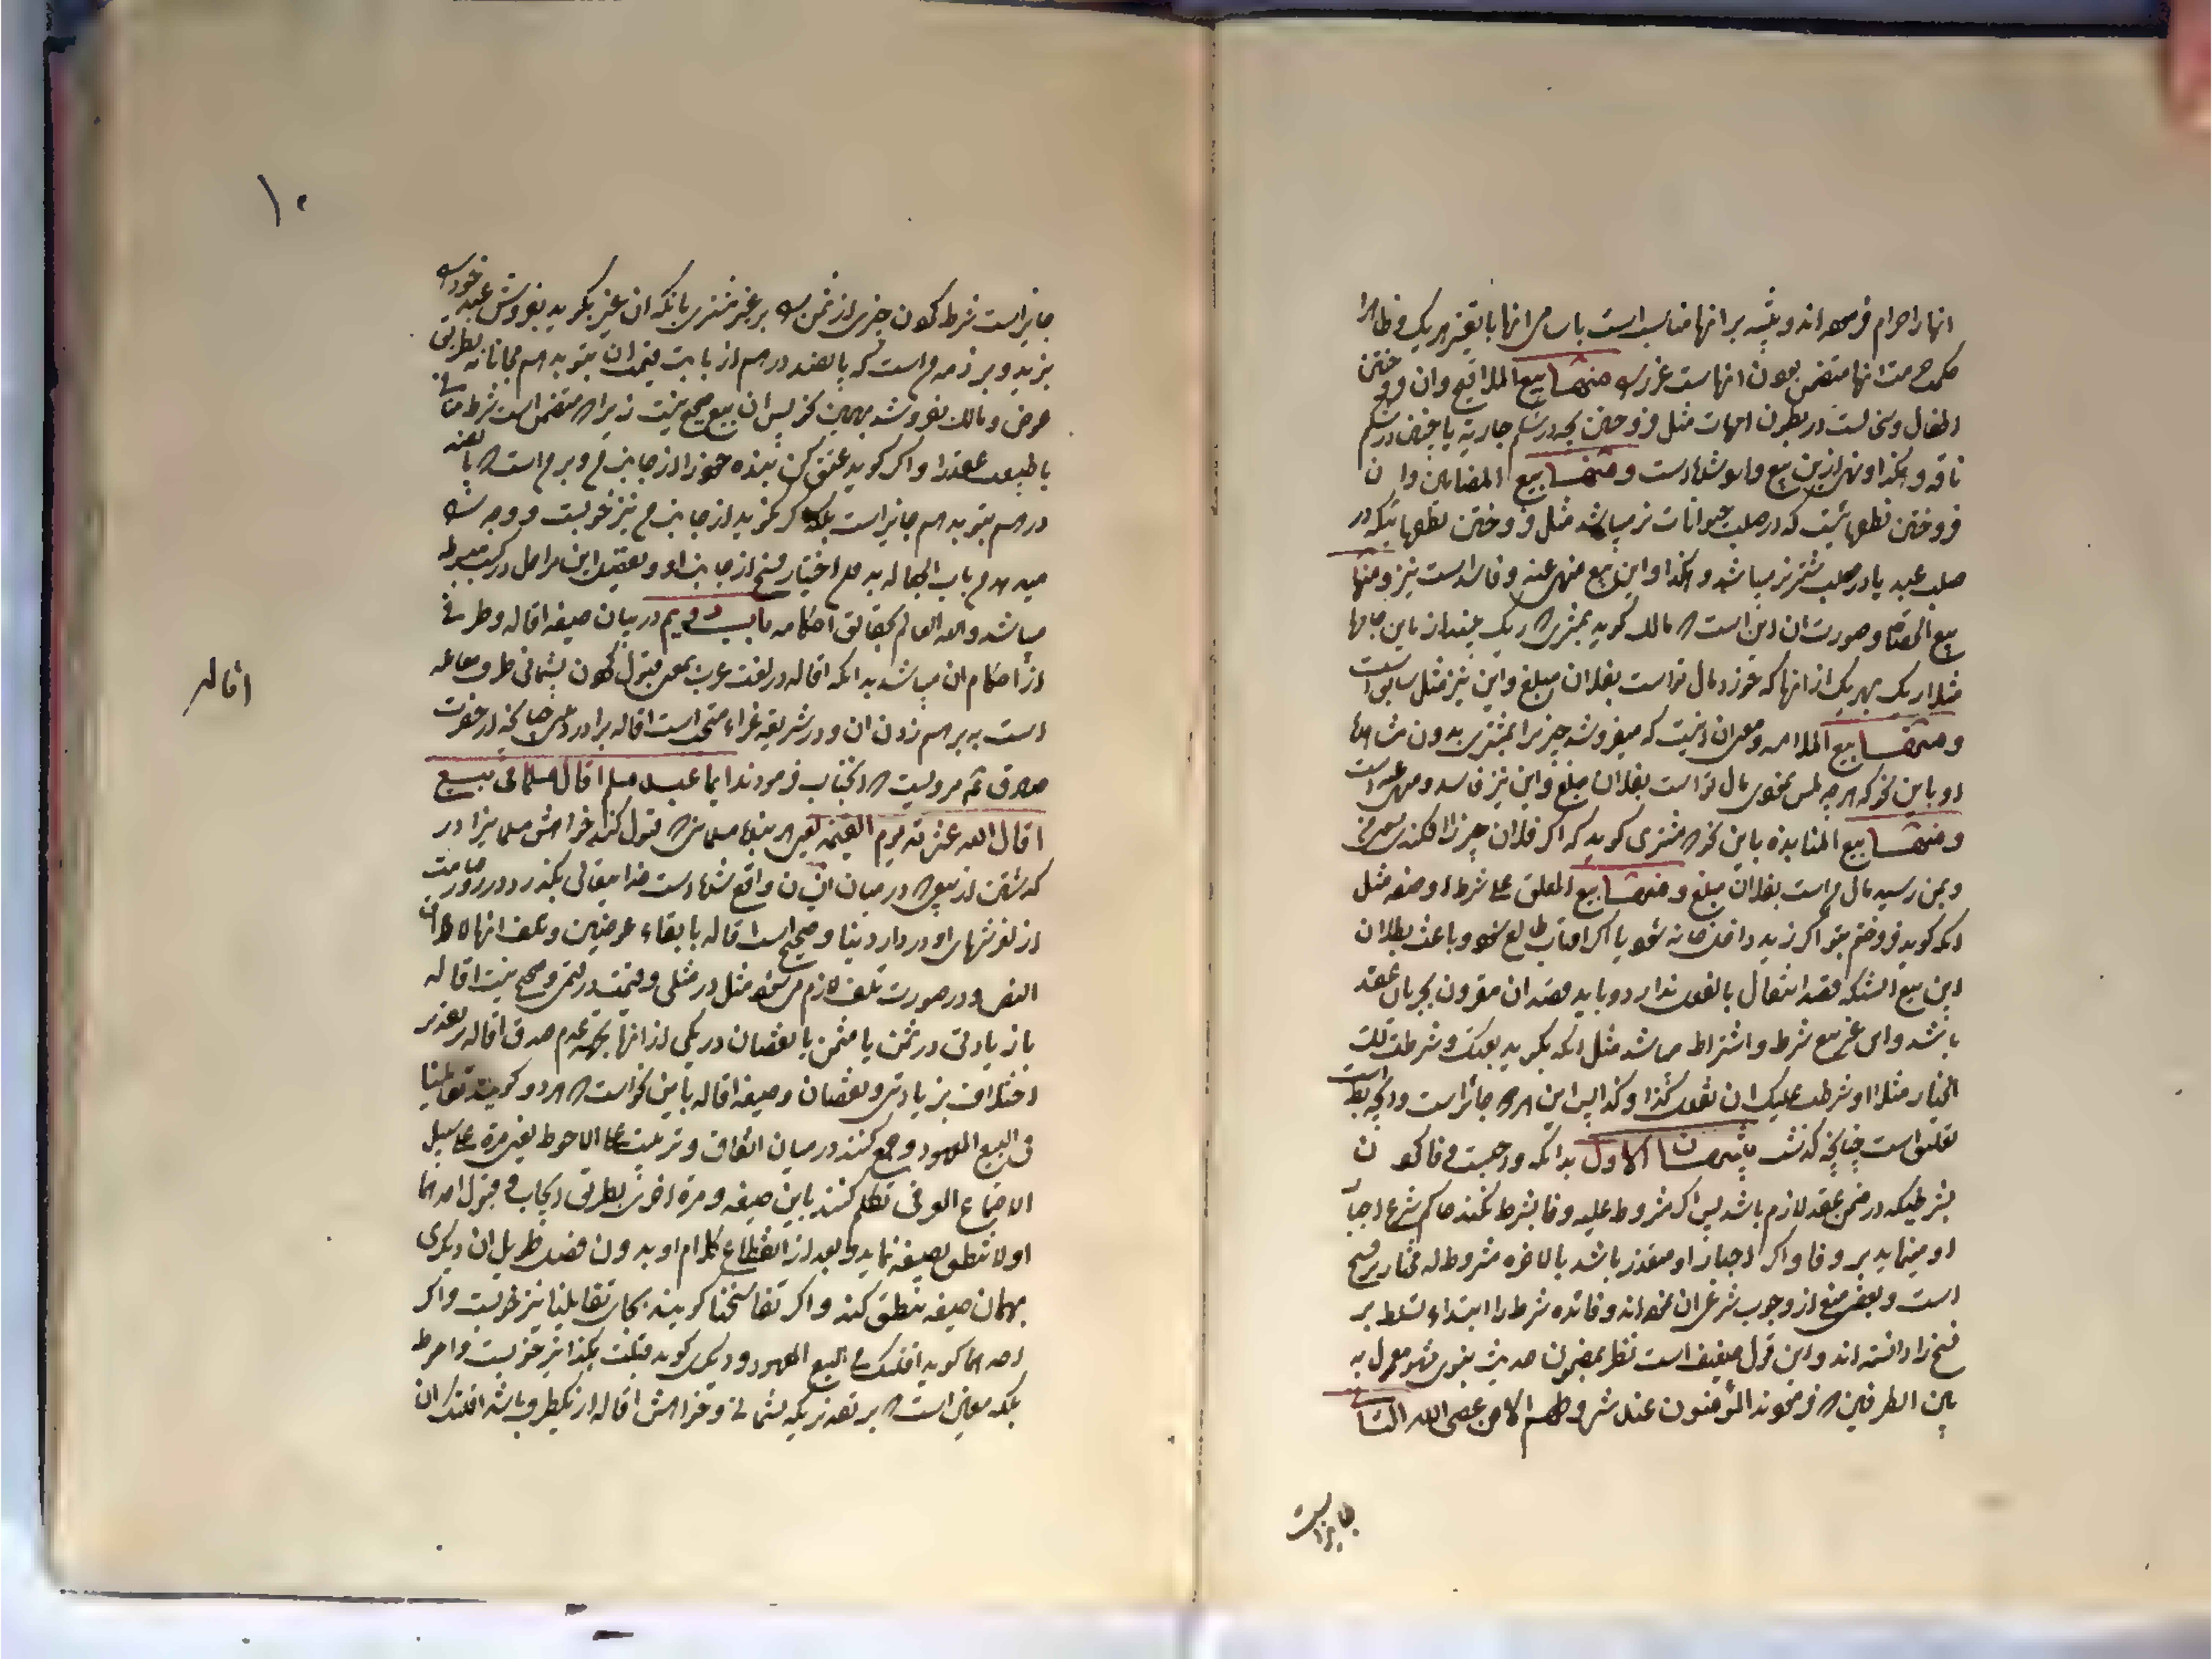 انها را حرام فرموده اند و تنبیه بر انها مناسب است باسامی انها با تعیین هر یک و ظاهرا
حکمت حرمت انها متضمن بودن انهاست غرر را منها بیع الملاقیح وان فروختن
اطفال و نتی است در بطون امهات مثل فروختن بچه در شکم جاریه یا جنین در شکم
ناقه و هکذا و نهی ازین بیع وارد شده است و منها بیع المضامین وان
فروختن نطفهائیست که در صلب حیوانات نر میباشد مثل فروختن نطفهائیکه در
صلب عبد یا در صلب شتر نر میباشد و هکذا و این بیع منهی عنه و فاسد است نیز و منها
بیع الحصاة و صورت ان این است که مالک کوید بمشتری که ریک بینداز باین جامها
مثلا ریک بهر یک از انها که خورد مال تو است بفلان مبلغ و این نیز مثل سابق است
و منها بیع الملامسه و معنی ان اینست که میفروشد چیزیرا بمشتری بدون مشاهده
او باین نحو که هر چه لمس نمودی مال تو است بفلان مبلغ و این نیز فاسد و منهی عنه است
و منها بیع المنابذه باین نحو که مشتری کوید که اکر فلان چیز را افکندی بسوی من
و بمن رسید مال من است بفلان مبلغ و منها بیع المعلق علی شرط او صفه مثل
انکه کوید فروختم بتو اکر زید داخل خانه شود یا اکر افتاب طالع شود و باعث بطلان
این بیع انستکه قصد انتقال بالفعل ندارد و باید قصد ان مقرون بجریان عقد
باشد و این غیر بیع شرط و اشتراط میباشد مثل انکه بکوید بعتک و شرطت لک
الخیار مثلا او شرطت علیک ان تفعل کذا و کذا پس این هر دو جائز است و انچه باطل است
تعلیق است چنانچه کذشت تنبیهان الاول بدانکه واجبست وفا کردن
بشرطیکه در ضمن عقد لازم باشد پس اکر مشروط علیه وفا بشرط نکند حاکم شرع اجبار
او مینماید بر وفا و اکر اجبار او متعذر باشد بالاخره مشروط له مختار بر فسخ
است و بعضی منع از وجوب شرعی ان نموده اند و فائده شرط را ابتداء تسلط بر
فسخ را دانسته اند و این قول ضعیف است نظر بمضمون حدیث نبوی مشهور معمول به
بین الطرفین که فرمودند المؤمنون عند شروطهم الا من عصی الله الثانی
جایز است
۱۰
جایز است شرط کردن چیزی از ثمن را بر غیر مشتری بانکه ان غیر بکوید بفروش عبد خود را
بزید و بر ذمه من است که پانصد درهم از بابت قیمت ان بتو بدهم مجانا نه بطریق
عوض و مالک بفروشد بهمین نحو پس ان بیع صحیح نیست زیرا که متضمن است شرط منافی
با طبیعت عقد را و اکر کوید عتق کن بنده خود را از جانب من و بر من است که پانصد
درهم بتو بدهم جایز است بلکه اکر نکوید از جانب من نیز خوبست و وجه را
میدهم باب الجعاله بدهد اختیار فسخ از جانب او و تفصیل این مراحل در کتب مبسوطه
میباشد و الله العالم بحقایق احکامه باب دویم در بیان صیغه اقاله و طرفی
از احکام ان میباشد بدانکه اقاله در لغت عرب بمعنی قبول کردن پشیمانی طرف معامله
است به بر هم زدن ان و در شریعه غراء مستحب است اقاله برادر دینی چنانکه از حضرت
صادق ع مرویست که انجناب فرمودند ایما عبد مسلم اقال مسلما فی بیع
اقال الله عثرته یوم القیمه یعنی هر بنده مسلمانی که قبول کند خواهش مسلمانیرا در
کذشتن از بیعی که در میان ایشان واقع شده است خدا یتعالی بکذرد در روز قیامت
از لغزشهای او در دار دنیا و صحیح است اقاله با بقاء عوضین و تلف انها لاطلاق
النص و در صورت تلف لازم می شود مثل در مثلی و قیمت در قیمی و صحیح نیست اقاله
با زیادتی در ثمن یا مثمن یا نقصان در یکی از انها بجهه عدم صدق اقاله بر تقدیر
اختلاف بزیادتی و نقصان و صیغه اقاله باین نحو است که هر دو کویند تقایلنا
فی البیع المعهود و جمع کنند در میان اتفاق و ترتیب علی الاحوط یعنی مرة علی سبیل
الاجتماع العرفی تکلم کنند باین صیغه و مرة اخری بطریق ایجاب و قبول احدهما
اولا تنطق بصیغه نماید و بعد از انقطاع کلام او بدون فصل طویل ان دیکری
بهمان صیغه تنطق کند و اکر تفاسخنا کویند بجای تقایلنا نیز خوبست و اکر
احدهما کوید اقلتک فی البیع المعهود و دیکری کوید قبلت هکذا نیز خوبست و احوط
بلکه معین است که بر تقدیریکه پشیمانی و خواهش اقاله از یکطرف باشد اقلتک ان
اقاله